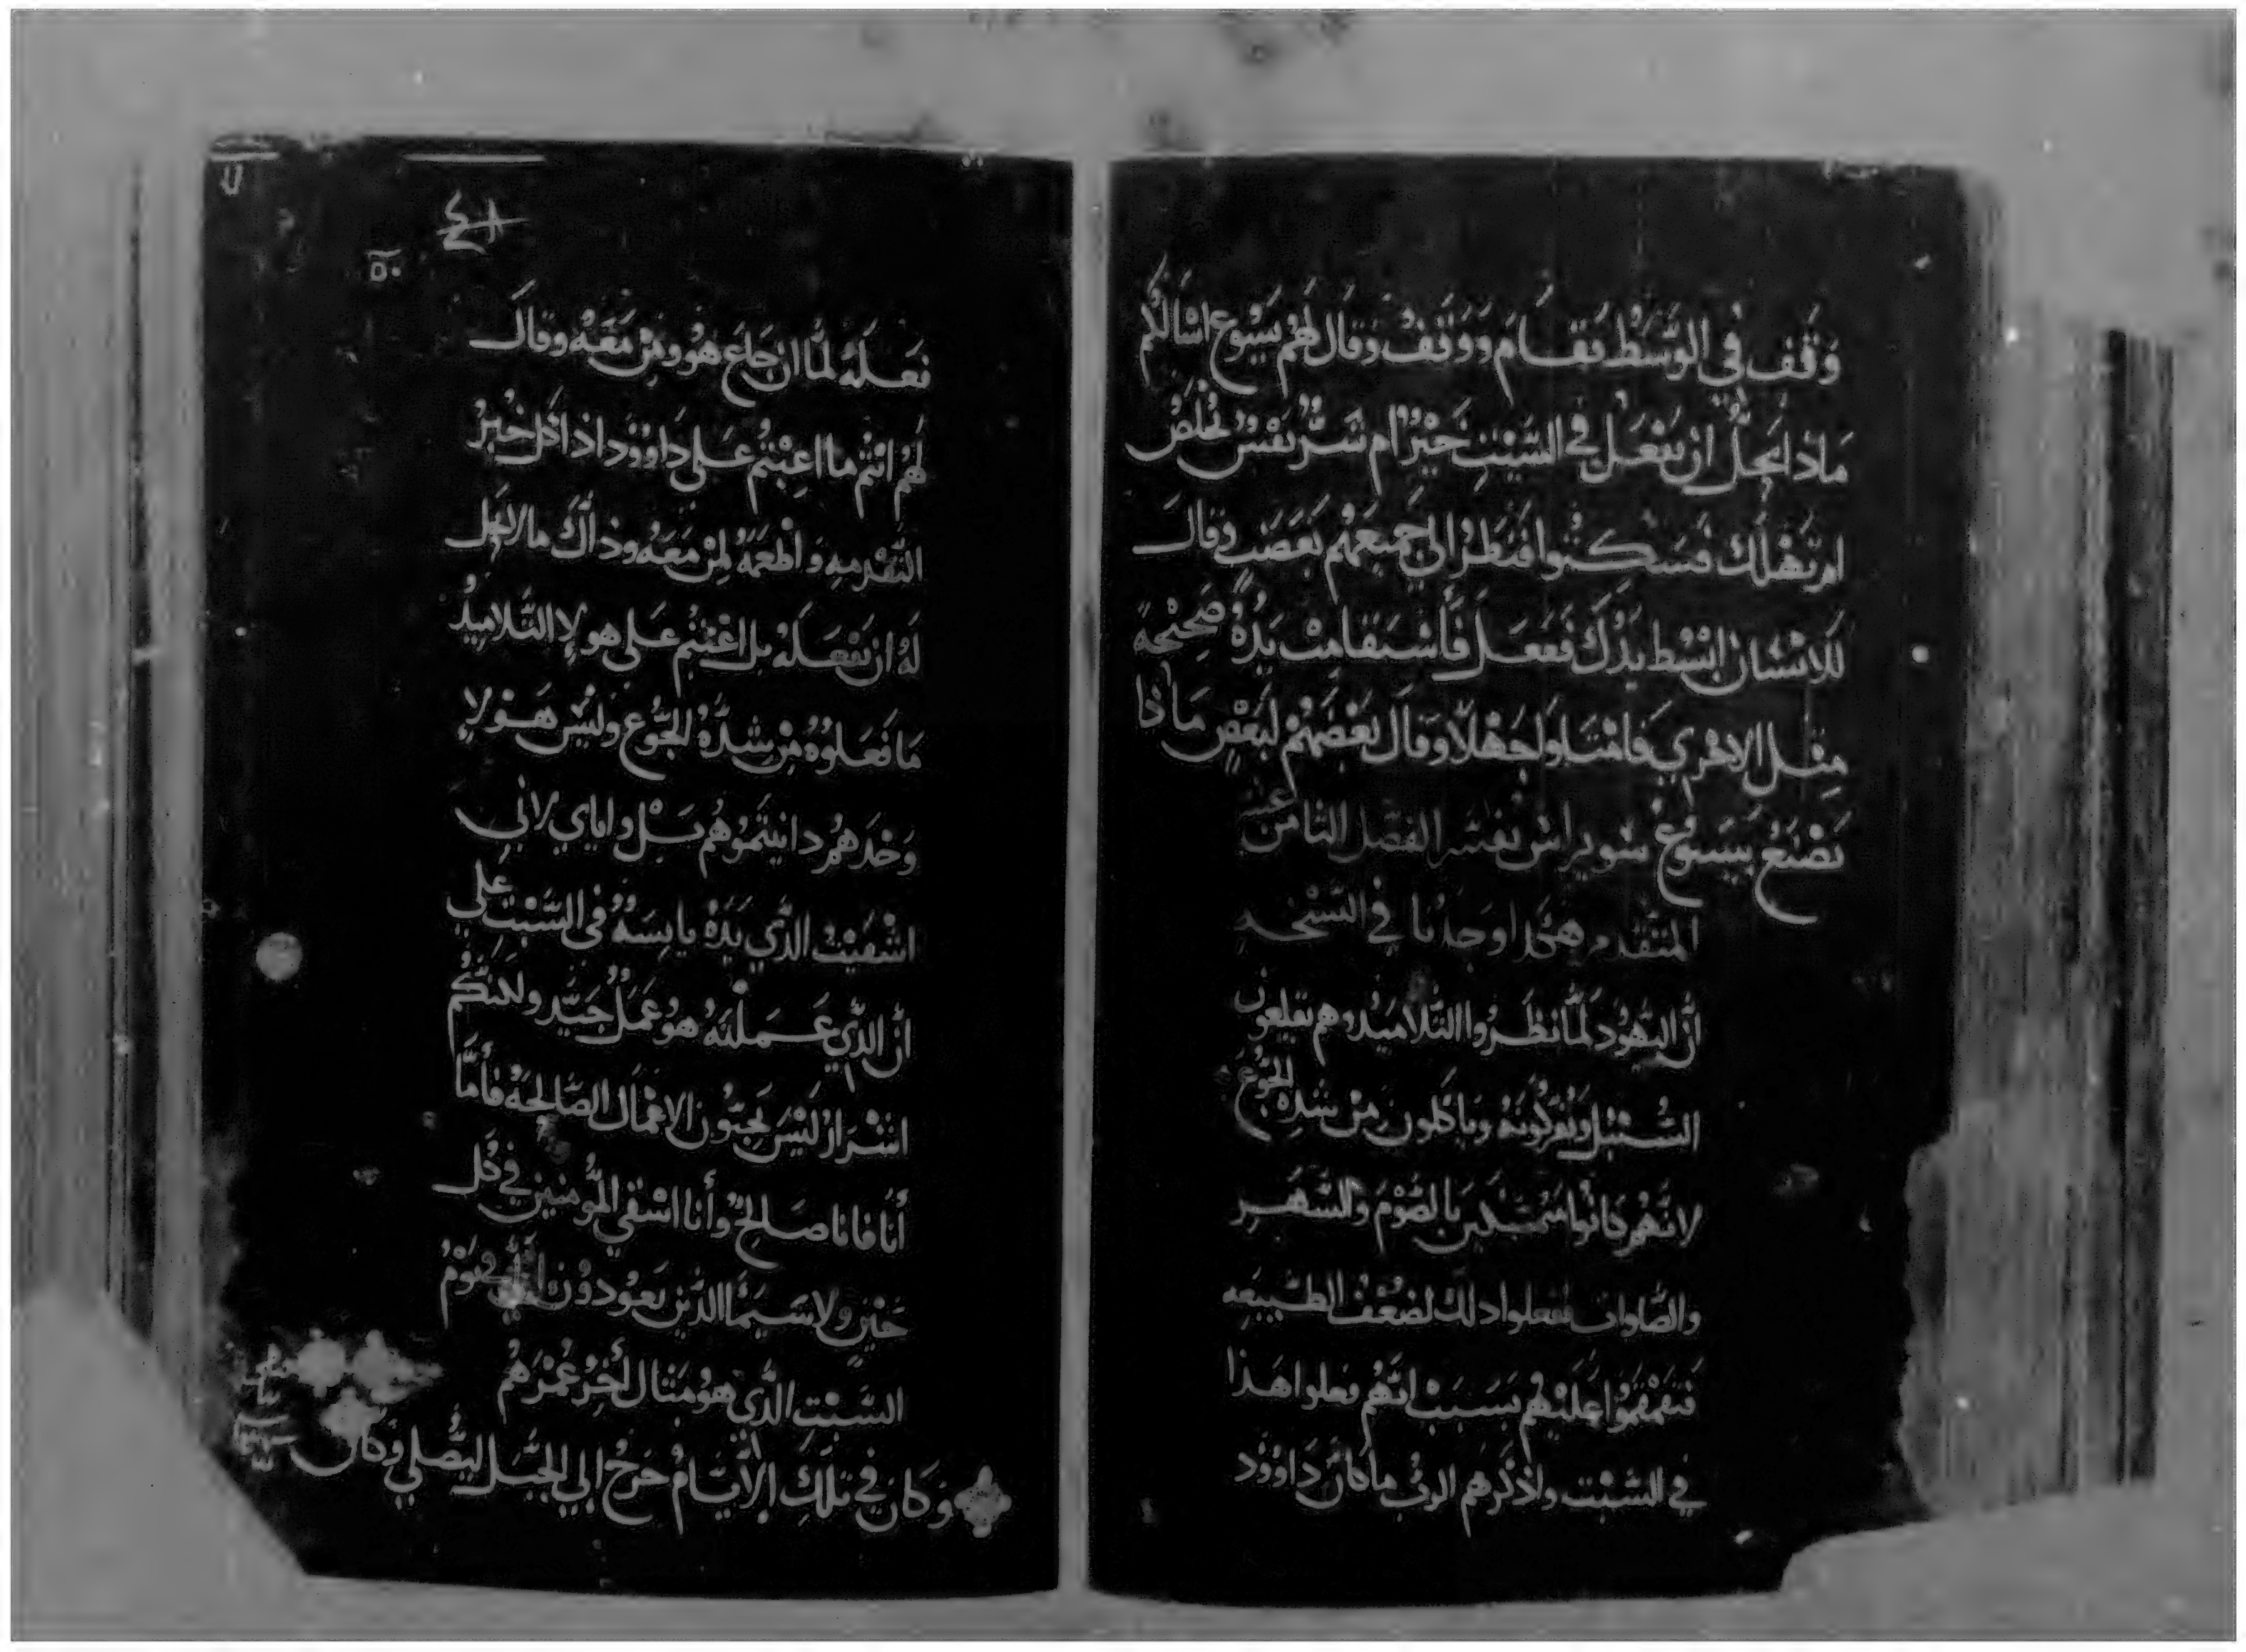 وَقِف في الوَسَط فقَام وَوَقف وَقال لهم يَسُوع اسَالكم
مَاذا يحلّ ان يفعَل في السَّبت خَيرٌ ام شرٌّ نفسٌ تخلص
ام تهلك فسَكتوا فنظر الي جميعهم بغضب وقالَ
للانسَان ابسُط يدَك ففعَل فأستقامت يدهُ صَحيحة
مثل الاخري فامتلوا جهلاً وقال بعضهم لبعضٍ ماذا
نصنع بيسوع سويرس نفسه الفصل الثامن عشر
المتقدم هكذا وجدنا في النسخه
انّ اليهود لمّا نظروا التلاميد وهم يقلعون
السنبل ويفركونه وياكلون من شده الجوع
لانهم كانوا متمسكين بالصّوم والسّهر
والصّلوات ففعلوا دلك لضعف الطبيعه
فتقمقموا عليهم بسَبب انهم فعلوا هذا
في السّبت واذكرهم الرب ما كان داوود
لا
٤٨
٥٠
فعَله لمّا ان جاع هو ومن معَه وقالَ
لهم انتم ما اعبتم علي داوود اذ اكل خبز
التقدمه واطعمه لمن معَه وذاك ما لا يحل
لهُ ان يفعَله بل اعبتم علي هولاِ التلاميدُ
مَا فعلوهُ من شدّهُ الجوع وليس هَولاِ
وَحدهم دانيتموهم بل واياي لاني
اشفيت الذي يَدهُ يابسَهٌ في السّبت علي
انّ الذي عَملته هو عَملٌ جيّد ولكنّكم
اشرارٌ ليسَ تحبّون الاعمال الصّالحهُ فأمّا
أنا فانا صَالحٌ وأنا اشفي المومنين في كل
حَينٍ ولا سيّما الذين يعودون اليّ في يوم
السَّبتِ الذي هو مثال أخر عُمرهم
وَكانَ في تلكَ الأيّام خرجَ الي الجبَل ليصَلي وكان